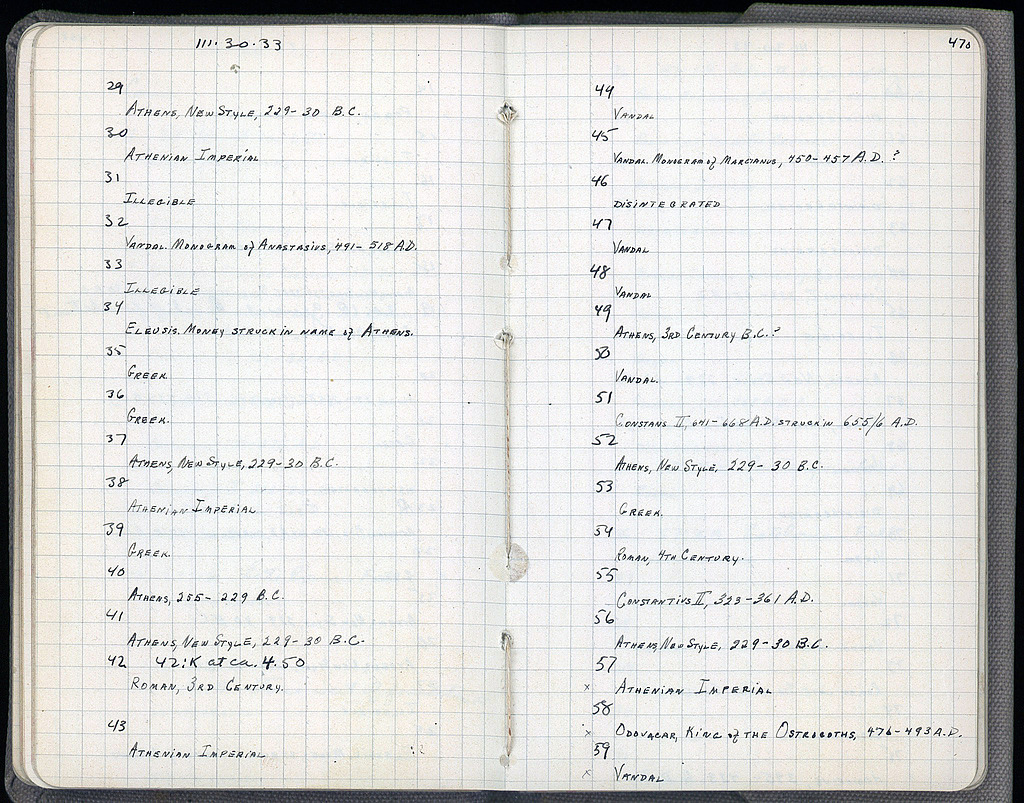 111·30·33
29
ATHENS, NEW STYLE, 229-30 B.C.
30
ATHENIAN IMPERIAL
31
ILLEGIBLE
32
VANDAL. MONOGRAM of ANASTASIUS, 491-518 A.D.
33
ILLEGIBLE
34
ELEUSIS. MONEY STRUCK IN NAME of ATHENS.
35
GREEK.
36
GREEK.
37
ATHENS, NEW STYLE, 229-30 B.C.
38
ATHENIAN IMPERIAL
39
GREEK.
40
ATHENS, 255-229 B.C.
41
ATHENS, NEW STYLE, 229-30 B.C.
42 42:K at ca. 4.50
ROMAN, 3RD CENTURY.
43
ATHENIAN IMPERIAL
470
44
VANDAL
45
VANDAL. MONOGRAM of MARCIANUS, 450-457 A.D. ?
46
DISINTEGRATED
47
VANDAL
48
VANDAL
49
ATHENS, 3RD CENTURY B.C.?
50
VANDAL.
51
CONSTANS II, 641-668 A.D. STRUCK IN 655/6 A.D.
52
ATHENS, NEW STYLE, 229-30 B.C.
53
GREEK.
54
ROMAN, 4TH CENTURY.
55
CONSTANTIUS II, 323-361 A.D.
56
ATHENS, NEW STYLE, 229-30 B.C.
57
x ATHENIAN IMPERIAL
58
x ODOVACAR, KING of THE OSTROGOTHS, 476-493 A.D.
59
x VANDAL